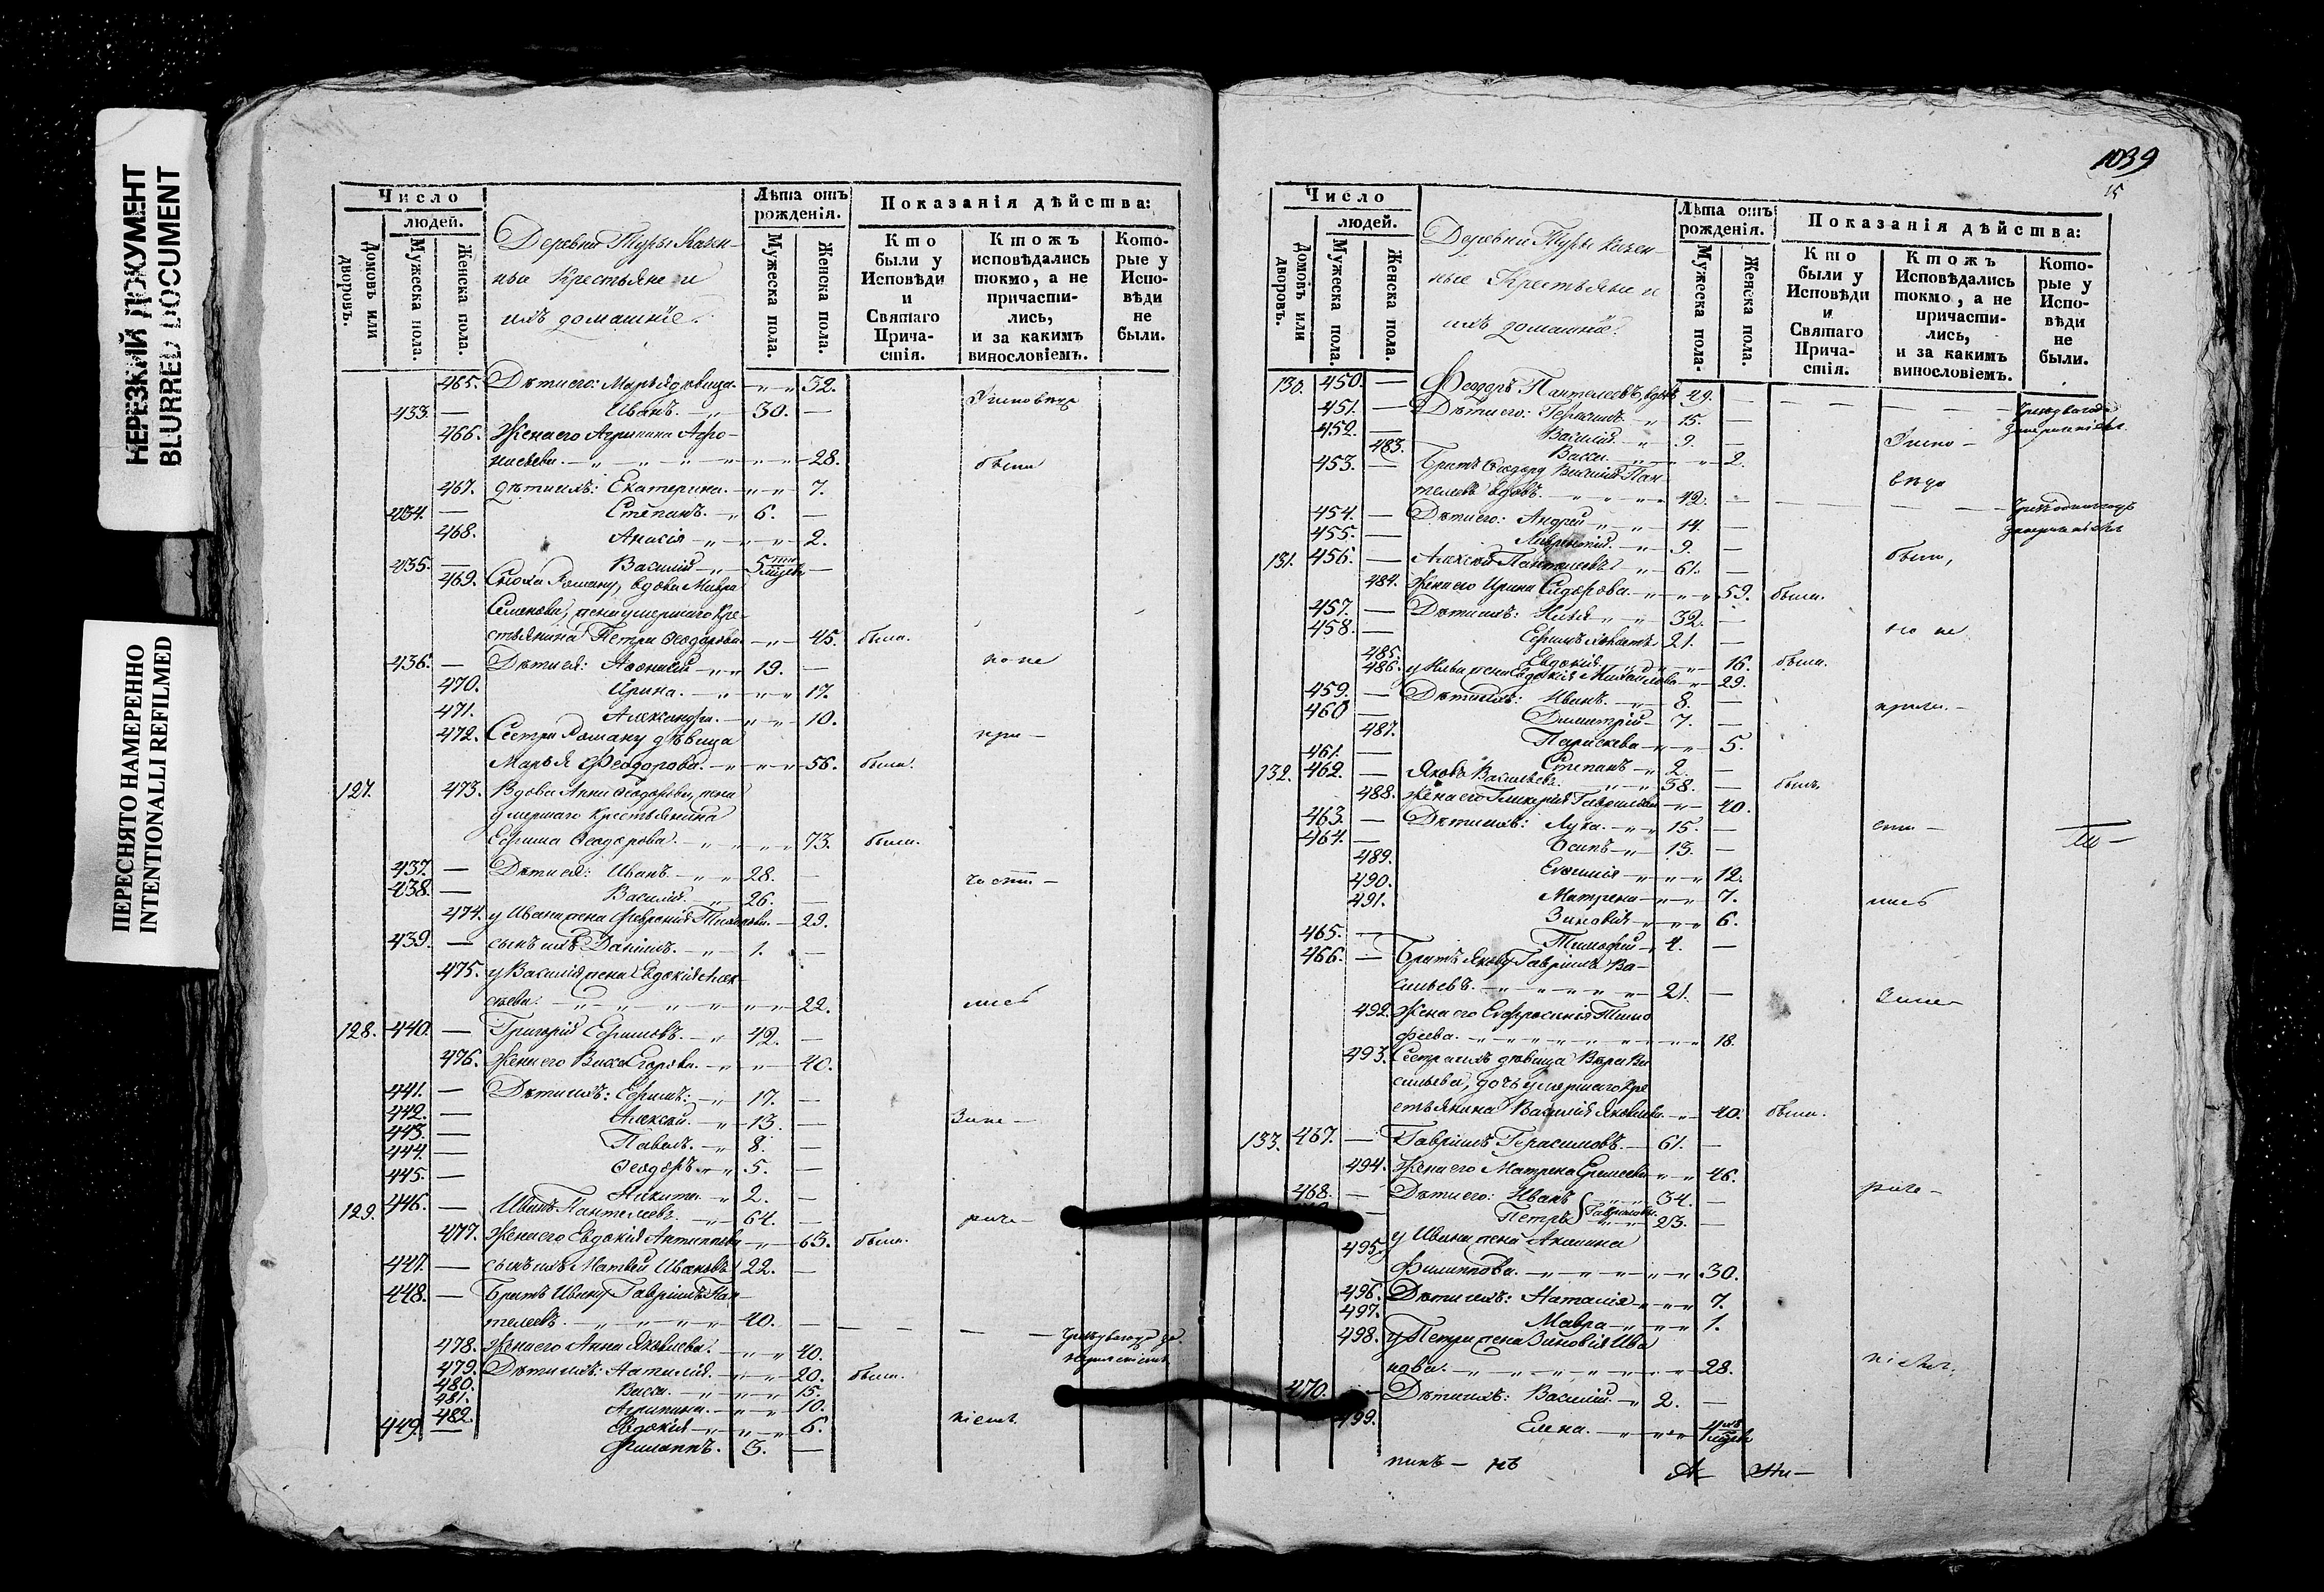 НЕРЕЗКИЙ ДОКУМЕНТ
BLURRED DOCUMENT
ПЕРЕСНЯТО НАМЕРЕННО
INTENTIONALLI REFILMED
Число
людей.
Домовъ или дворовъ.
Мужеска пола.
Женска пола.
Деревни Туры Казен-
ные Крестьяне и
ихъ домашніе.
Лѣта отъ рожденія.
Мужеска пола.
Женска пола.
Показанія дѣйства:
Кто были у Исповѣди и Святаго Прича-стія.
Ктожъ исповѣдались токмо, а не причасти-лись, и за какимъ винословіемъ.
Кото-рые у Испо-вѣди не были.
465. Дѣти его: Марья девица 32.
433. — Иванъ. 30. —
466. Жена его Агрипина Афо-
насьева. 28.
467. Дѣти ихъ: Екатерина. 7.
434. — Степанъ. 6. —
468. Анисія 2.
435. — Василій 5 —
469. Сноха Роману, вдова Мавра
Семенова, жена умершаго Кре-
стьянина Петра Ѳеодорова 45. была.
436. — Дѣти ея: Аѳонасій 19. — но не
470. Ирина. 17.
471. Александра. 10.
472. Сестра Роману дѣвица при —
Марья Ѳеодорова. 56. была.
127. 473. Вдова Анна Ѳеодорова, жена
умершаго Крестьянина
Ефима Ѳеодорова. 73. была.
437. — Дѣти ея: Иванъ. 28. —
438. — Василій. 26. —
474. у Ивана жена 29.
439. — сынъ ихъ Даніилъ. 1. —
475. у Василія жена Евдокія Алек-
сѣева. 22. лись
128. 440. — Григорій Ефимовъ. 42. —
476. Жена его Васса Егорова. 40.
441. — Дѣти ихъ: Ефимъ: 17. —
442. — Алексѣй. 13. —
443. — Павелъ. 8. —
444. — Ѳеодоръ. 5. —
445. — Никита. 2. —
129. 446. — Иванъ Пантелеевъ. 64. —
477. Жена его Евдокія Антипова 63. была.
447. — сынъ ихъ Матвей Ивановъ 22. —
448. — Братъ Ивану Гавріилъ Пан-
телеевъ. 40. —
478. Жена его Анна Яковлева. 40.
479. Дѣти ихъ: Наталія. 20. была.
480. Васса. 15.
481. Агрипина. 10.
482. Евдокія 6.
449. — Филиппъ. 3. —
1039
15
Число
людей.
Домовъ или дворовъ.
Мужеска пола.
Женска пола.
Деревни Туры Казен-
ные Крестьяне и
ихъ домашніе.
Лѣта отъ рожденія.
Мужеска пола.
Женска пола.
Показанія дѣйства:
Кто были у Исповѣди и Святаго Прича-стія.
Ктожъ Исповѣдались токмо, а не причасти-лись, и за какимъ винословіемъ.
Кото-рые у Испо-вѣди не были.
130. 450. — Ѳеодоръ Пантелеевъ вдовъ 49. —
451. — Дѣти его: Герасимъ 15. —
452. — Василій 9. —
483. Васса. 2.
453. — Братъ Ѳеодору Василій Пан-
телеевъ вдовъ. 42. —
454. — Дѣти его: Андрей 14. —
455. — 9. —
131. 456. — Алексѣй Пантелеевъ 61. — были,
484. Жена его Ирина Сидорова. 59. была.
457. — Дѣти ихъ: Илья 32. —
458. — Ефимъ 21. — но не
485. Евдокія. 16. была.
486. у Ильи жена Евдокія Михайлова 29.
459. — Дѣти ихъ: Иванъ. 8. —
460 — Димитрій 7. —
487. Параскева 5.
461. — Степанъ 2. —
132. 462. — Яковъ Васильевъ. 38. — былъ
488. Жена его Гликерія 40.
463. — Дѣти ихъ: Лука. 15. —
464. — Осипъ 13. —
489. Евѳимія 12.
490. Матрена 7.
491. Зиновія 6.
465. — Тимофей 4. —
466. — Братъ Якову Гавріилъ Ва-
сильевъ. 21. —
492. Жена его Евфросинія Тимо
феева. 18.
493. Сестра ихъ дѣвица Вѣра Ва
сильева, дочь умершаго Кре
стьянина Василія Яковлева 40. была.
133. 467. — Гавріилъ Герасимовъ. 61. —
494. Жена его Матрена 46.
468. — Дѣти его: Иванъ 34. —
— Петръ Гавриловы. 23. —
495. у Ивана жена Акилина
Филиппова. 30.
496. Дѣти ихъ: Наталія 7.
497. Мавра 1.
498. у Петра жена Зиновія Ива
нова. 28.
470. — Дѣти ихъ: Василій. 2. —
499. Елена.